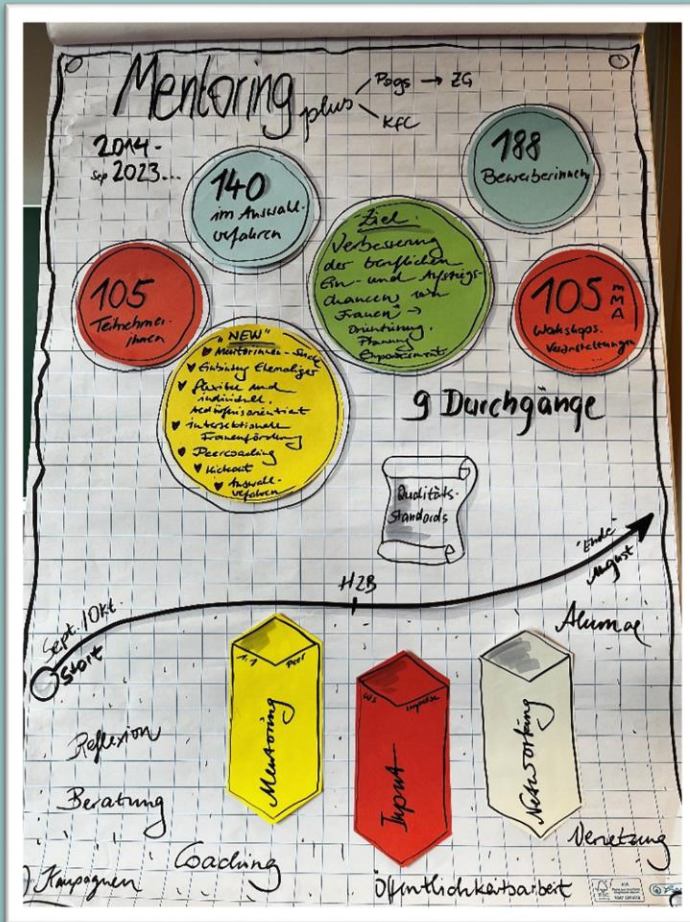 Mentoring plus
Pogs → ZG
KfC
2014-
Sep 2023...
140
im Auswahl-
verfahren
188
Bewerberinnen
105
Teilnehmer-
innen
Ziel:
Verbesserung
der beruflichen
Ein- und Aufstiegs-
chancen von
Frauen →
Orientierung,
Planung
Empowerment
105 MMA
Workshops.
Veranstaltungen
"NEW"
Mentorinnen-Suche
Einbindung Ehemaliger
flexibel und
individuell,
bedürfnisorientiert
intersektionale
Frauenförderung
Peercoaching
Kickout
Auswahl-
verfahren
9 Durchgänge
Qualitäts-
standards
Sept./Okt.
Start
HZB
"Ende"
August
Alumnae
1:1 Peer
Mentoring
WS Impulse
Input
Networking
Reflexion
Beratung
Coaching
Vernetzung
Kampagnen
Öffentlichkeitsarbeit